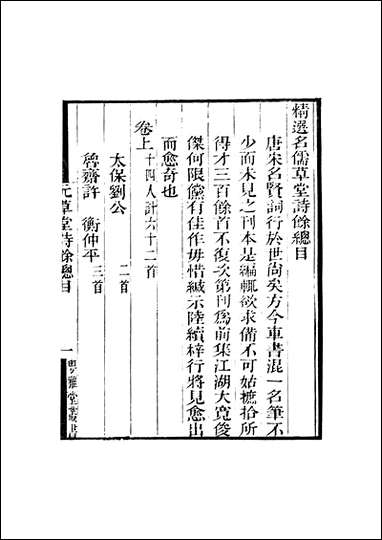 精選名儒草堂詩餘總目
唐宋名賢詞行於世尚矣方今車書混一名筆不
少而未見之刊本是編輒欲求備不可姑摭拾所
得才三百餘首不復次第刊爲前集江湖大寬俊
傑何限儻有佳作毋惜緘示陸續梓行將見愈出
而愈奇也
卷上十四人計六十二首
太保劉公 二首
魯齋許 衡仲平 三首
元草堂詩餘總目 一 粤雅堂叢書